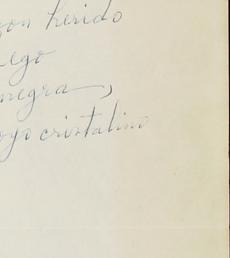 zon herido
ego
negra,
oyo cristalino